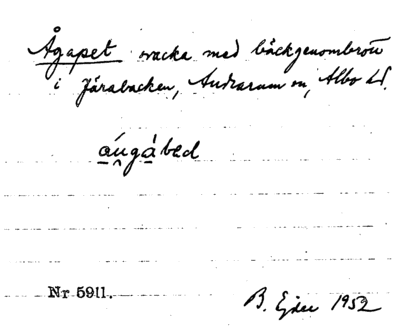 Ågapet svacka med bäckgenombrott
i Järabacken, Andrarum sn, Albo hd.
áu̯gàbed
Nr 5911.
B. Ejder 1952